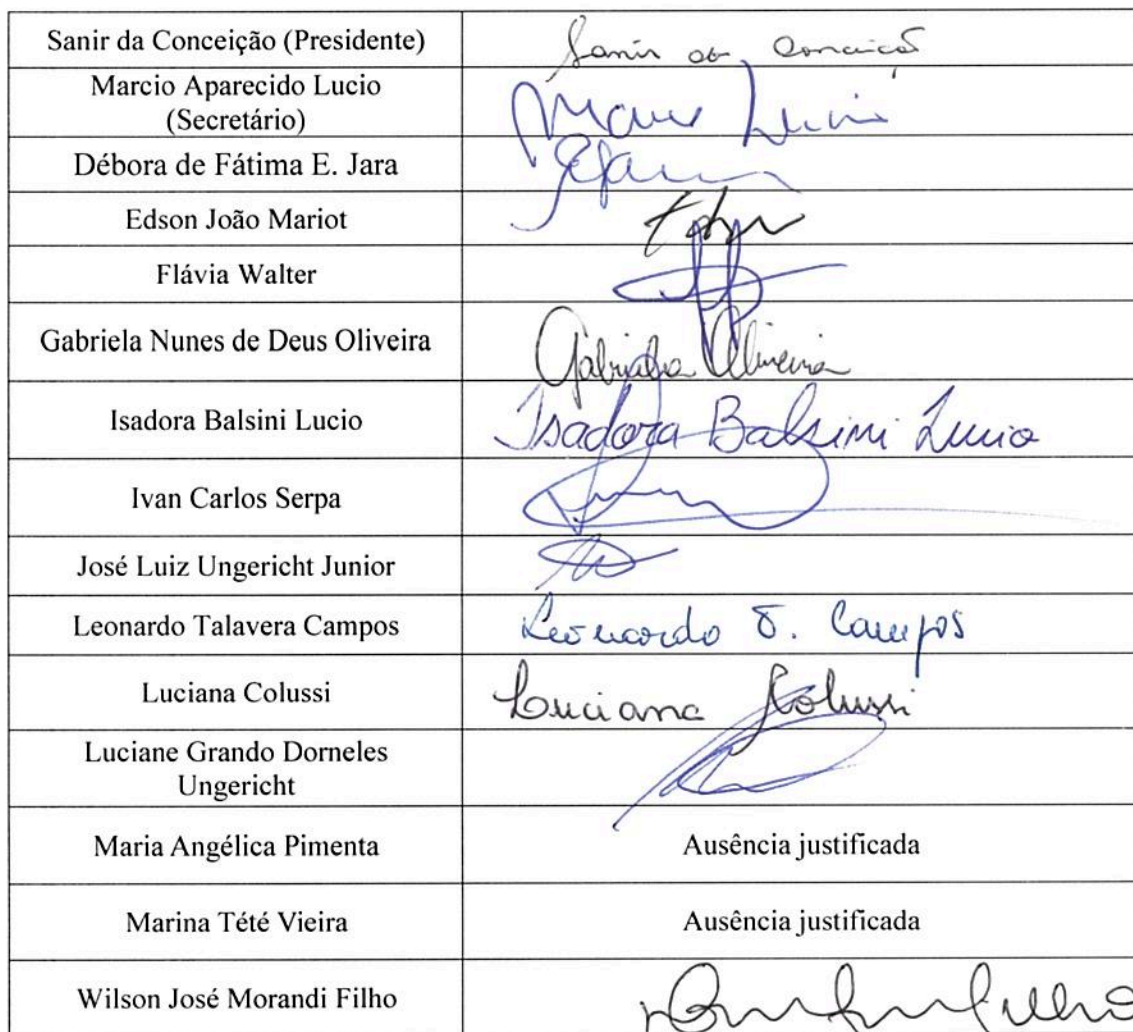 Sanir da Conceição (Presidente)
Sanir da Conceição
Marcio Aparecido Lucio
(Secretário)
Marcio Lucio
Débora de Fátima E. Jara
Edson João Mariot
Flávia Walter
Gabriela Nunes de Deus Oliveira
Gabriela Oliveira
Isadora Balsini Lucio
Isadora Balsini Lucio
Ivan Carlos Serpa
José Luiz Ungericht Junior
Leonardo Talavera Campos
Leonardo T. Campos
Luciana Colussi
Luciana Colussi
Luciane Grando Dorneles
Ungericht
Maria Angélica Pimenta
Ausência justificada
Marina Tété Vieira
Ausência justificada
Wilson José Morandi Filho
Filho